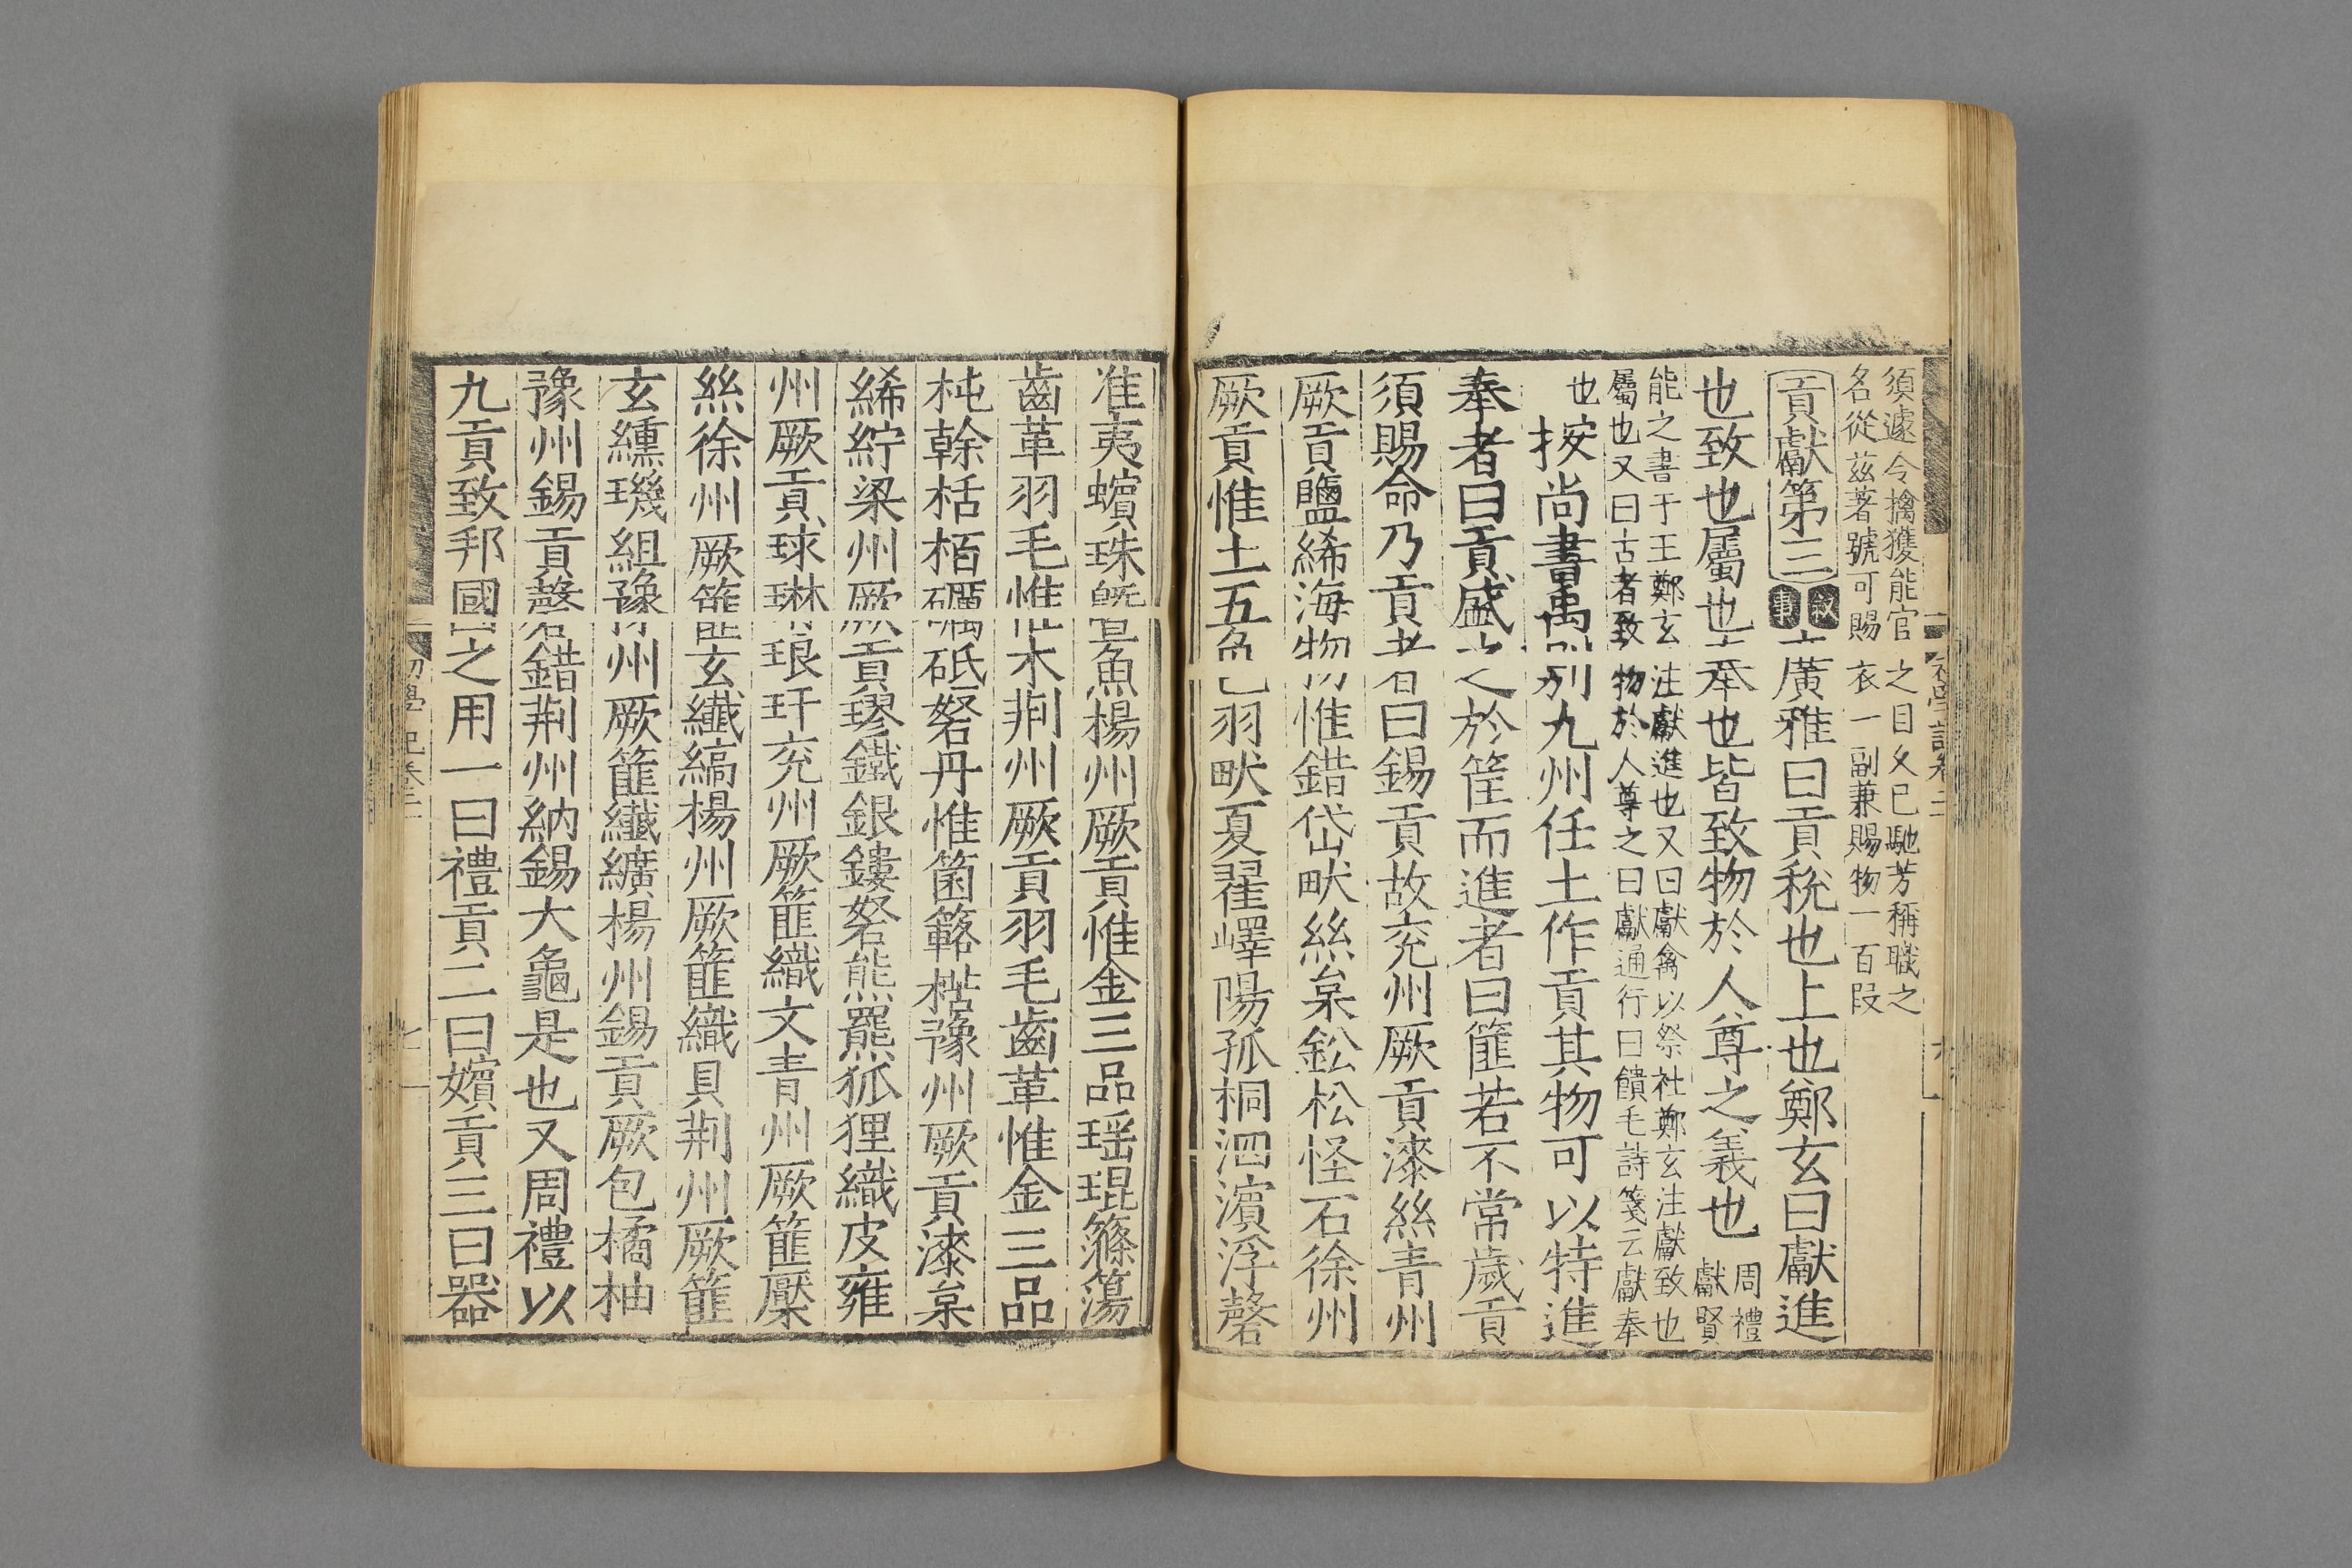 須遽令擒獲能官之目攵已馳芳稱職之
名從茲著號可賜衣一副兼賜物一百段
貢獻第三 叙事 廣雅曰貢稅也上也鄭玄曰獻進
也致也屬也奉也皆致物於人尊之義也 周禮獻賢
能之書于王鄭玄注獻進也又曰獻禽以祭社鄭玄注獻致也
屬也又曰古者致物於人尊之曰獻通行曰饋毛詩箋云獻奉
也 按尚書禹別九州任土作貢其物可以特進
奉者曰貢盛之於筐而進者曰篚若不常歲貢
須賜命乃貢者曰錫貢故兖州厥貢漆絲青州
厥貢鹽絺海物惟錯岱畎絲枲鈆松怪石徐州
厥貢惟土五色羽畎夏翟嶧陽孤桐泗濵浮磬
淮夷蠙珠曁魚楊州厥貢惟金三品瑶琨篠簜
齒革羽毛惟木荆州厥貢羽毛齒革惟金三品
杶榦栝栢礪砥砮丹惟箘簵楛豫州厥貢漆枲
絺紵梁州厥貢璆鐵銀鏤砮熊羆狐狸織皮雍
州厥貢球琳琅玕兖州厥篚織文青州厥篚檿
絲徐州厥篚玄纖縞楊州厥篚織貝荆州厥篚
玄纁璣組豫州厥篚纖纊楊州錫貢厥包橘柚
豫州錫貢磬錯荆州納錫大龜是也又周禮以
九貢致邦國之用一曰禮貢二曰嬪貢三曰器
初學記卷二